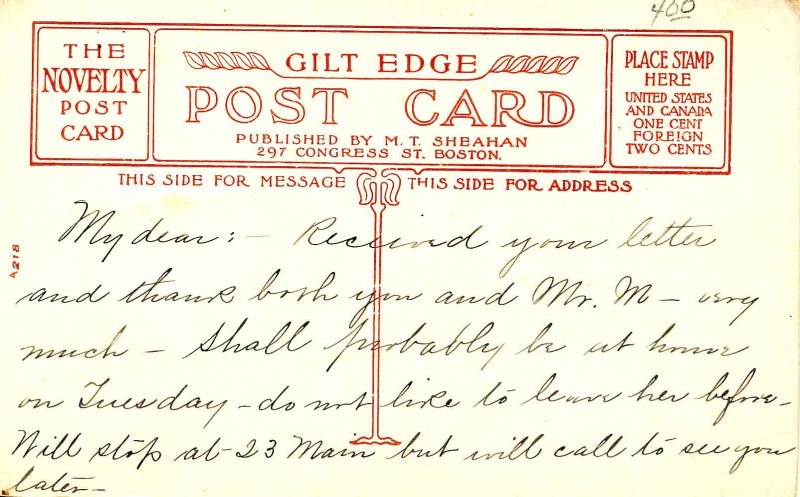 400
THE
NOVELTY
POST
CARD
GILT EDGE
POST CARD
PUBLISHED BY M. T. SHEAHAN
297 CONGRESS ST. BOSTON.
PLACE STAMP
HERE
UNITED STATES
AND CANADA
ONE CENT
FOREIGN
TWO CENTS
THIS SIDE FOR MESSAGE
THIS SIDE FOR ADDRESS
A218
My dear: — Received your letter
and thank both you and Mr. M — very
much — Shall probably be at home
on Tuesday — do not like to leave her before —
Will stop at 23 Main but will call to see you
later —